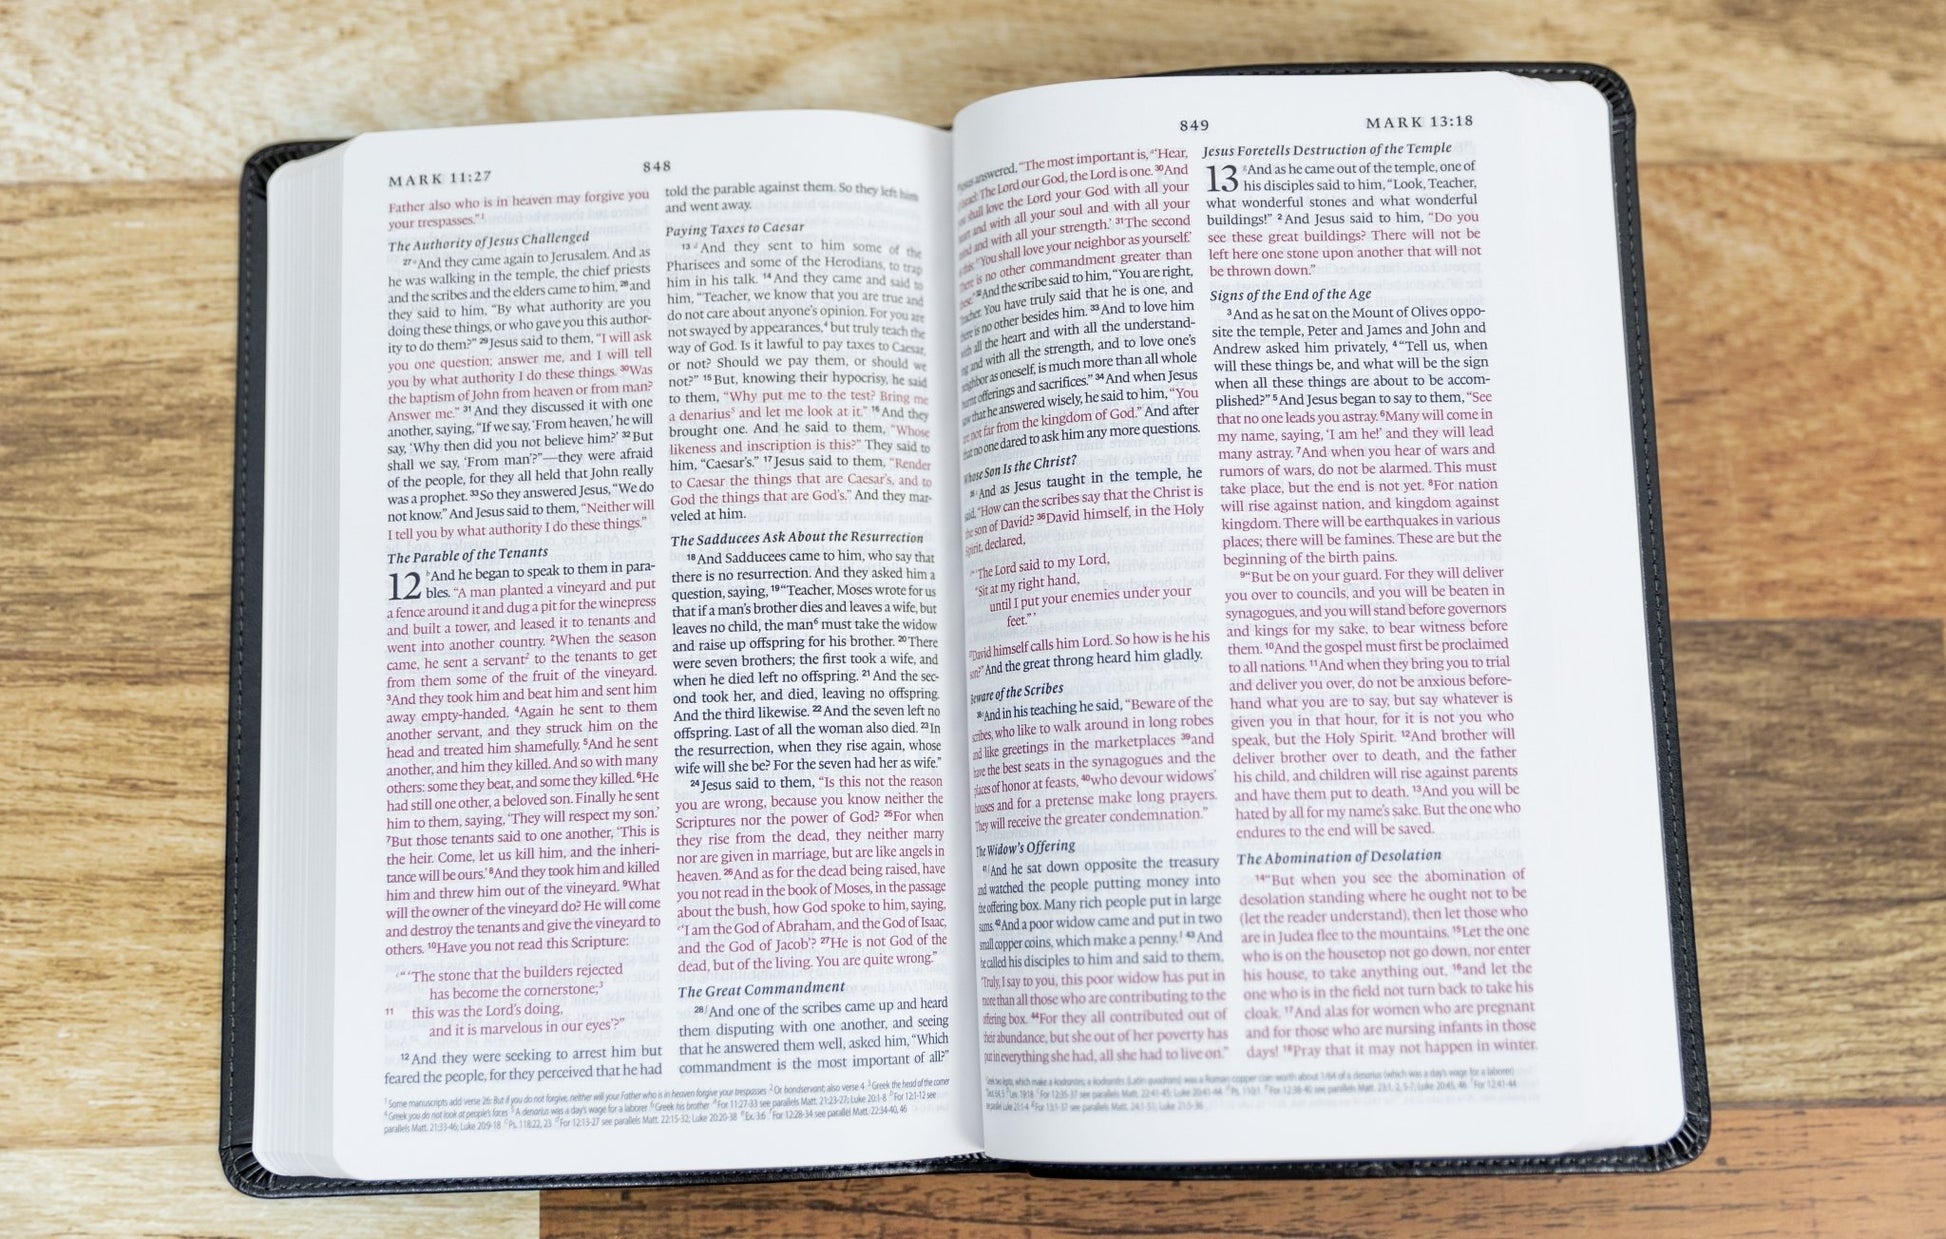 MARK 11:27
848
Father also who is in heaven may forgive you
your trespasses.”¹
The Authority of Jesus Challenged
²⁷ᵃAnd they came again to Jerusalem. And as
he was walking in the temple, the chief priests
and the scribes and the elders came to him, ²⁸and
they said to him, “By what authority are you
doing these things, or who gave you this author-
ity to do them?” ²⁹Jesus said to them, “I will ask
you one question; answer me, and I will tell
you by what authority I do these things. ³⁰Was
the baptism of John from heaven or from man?
Answer me.” ³¹And they discussed it with one
another, saying, “If we say, ‘From heaven,’ he will
say, ‘Why then did you not believe him?’ ³²But
shall we say, ‘From man’?”—they were afraid
of the people, for they all held that John really
was a prophet. ³³So they answered Jesus, “We do
not know.” And Jesus said to them, “Neither will
I tell you by what authority I do these things.”
The Parable of the Tenants
12 ᵇAnd he began to speak to them in para-
bles. “A man planted a vineyard and put
a fence around it and dug a pit for the winepress
and built a tower, and leased it to tenants and
went into another country. ²When the season
came, he sent a servant² to the tenants to get
from them some of the fruit of the vineyard.
³And they took him and beat him and sent him
away empty-handed. ⁴Again he sent to them
another servant, and they struck him on the
head and treated him shamefully. ⁵And he sent
another, and him they killed. And so with many
others: some they beat, and some they killed. ⁶He
had still one other, a beloved son. Finally he sent
him to them, saying, ‘They will respect my son.’
⁷But those tenants said to one another, ‘This is
the heir. Come, let us kill him, and the inheri-
tance will be ours.’ ⁸And they took him and killed
him and threw him out of the vineyard. ⁹What
will the owner of the vineyard do? He will come
and destroy the tenants and give the vineyard to
others. ¹⁰Have you not read this Scripture:
“‘The stone that the builders rejected
has become the cornerstone;³
11 this was the Lord’s doing,
and it is marvelous in our eyes’?”
¹²And they were seeking to arrest him but
feared the people, for they perceived that he had
told the parable against them. So they left him
and went away.
Paying Taxes to Caesar
¹³ᵈAnd they sent to him some of the
Pharisees and some of the Herodians, to trap
him in his talk. ¹⁴And they came and said to
him, “Teacher, we know that you are true and
do not care about anyone’s opinion. For you are
not swayed by appearances,⁴ but truly teach the
way of God. Is it lawful to pay taxes to Caesar,
or not? Should we pay them, or should we
not?” ¹⁵But, knowing their hypocrisy, he said
to them, “Why put me to the test? Bring me
a denarius⁵ and let me look at it.” ¹⁶And they
brought one. And he said to them, “Whose
likeness and inscription is this?” They said to
him, “Caesar’s.” ¹⁷Jesus said to them, “Render
to Caesar the things that are Caesar’s, and to
God the things that are God’s.” And they mar-
veled at him.
The Sadducees Ask About the Resurrection
¹⁸And Sadducees came to him, who say that
there is no resurrection. And they asked him a
question, saying, ¹⁹“Teacher, Moses wrote for us
that if a man’s brother dies and leaves a wife, but
leaves no child, the man⁶ must take the widow
and raise up offspring for his brother. ²⁰There
were seven brothers; the first took a wife, and
when he died left no offspring. ²¹And the sec-
ond took her, and died, leaving no offspring.
And the third likewise. ²²And the seven left no
offspring. Last of all the woman also died. ²³In
the resurrection, when they rise again, whose
wife will she be? For the seven had her as wife.”
²⁴Jesus said to them, “Is this not the reason
you are wrong, because you know neither the
Scriptures nor the power of God? ²⁵For when
they rise from the dead, they neither marry
nor are given in marriage, but are like angels in
heaven. ²⁶And as for the dead being raised, have
you not read in the book of Moses, in the passage
about the bush, how God spoke to him, saying,
‘I am the God of Abraham, and the God of Isaac,
and the God of Jacob’? ²⁷He is not God of the
dead, but of the living. You are quite wrong.”
The Great Commandment
²⁸And one of the scribes came up and heard
them disputing with one another, and seeing
that he answered them well, asked him, “Which
commandment is the most important of all?”
¹Some manuscripts add verse 26: But if you do not forgive, neither will your Father who is in heaven forgive your trespasses ²Or bondservant; also verse 4 ³Greek the head of the corner
⁴Greek you do not look at people’s faces ⁵A denarius was a day’s wage for a laborer ⁶Greek his brother ᵃFor 11:27-33 see parallels Matt. 21:23-27; Luke 20:1-8 ᵇFor 12:1-12 see
parallels Matt. 21:33-46; Luke 20:9-18 ᶜPs. 118:22, 23 ᵈFor 12:13-27 see parallels Matt. 22:15-32; Luke 20:20-38 ᵉEx. 3:6 ᶠFor 12:28-34 see parallel Matt. 22:34-40, 46
849
MARK 13:18
answered, “The most important is, ‘Hear,
The Lord our God, the Lord is one. ³⁰And
shall love the Lord your God with all your
and with all your soul and with all your
and with all your strength.’ ³¹The second
this: ‘You shall love your neighbor as yourself.’
is no other commandment greater than
³²And the scribe said to him, “You are right,
You have truly said that he is one, and
is no other besides him. ³³And to love him
all the heart and with all the understand-
and with all the strength, and to love one’s
as oneself, is much more than all whole
offerings and sacrifices.” ³⁴And when Jesus
that he answered wisely, he said to him, “You
are not far from the kingdom of God.” And after
that no one dared to ask him any more questions.
Whose Son Is the Christ?
³⁵And as Jesus taught in the temple, he
said, “How can the scribes say that the Christ is
the son of David? ³⁶David himself, in the Holy
Spirit, declared,
“‘The Lord said to my Lord,
“Sit at my right hand,
until I put your enemies under your
feet.”’
David himself calls him Lord. So how is he his
son?” And the great throng heard him gladly.
Beware of the Scribes
³⁸And in his teaching he said, “Beware of the
scribes, who like to walk around in long robes
and like greetings in the marketplaces ³⁹and
have the best seats in the synagogues and the
places of honor at feasts, ⁴⁰who devour widows’
houses and for a pretense make long prayers.
They will receive the greater condemnation.”
The Widow’s Offering
⁴¹And he sat down opposite the treasury
and watched the people putting money into
the offering box. Many rich people put in large
sums. ⁴²And a poor widow came and put in two
small copper coins, which make a penny.¹ ⁴³And
he called his disciples to him and said to them,
“Truly, I say to you, this poor widow has put in
more than all those who are contributing to the
offering box. ⁴⁴For they all contributed out of
their abundance, but she out of her poverty has
put in everything she had, all she had to live on.”
Jesus Foretells Destruction of the Temple
13 ᵍAnd as he came out of the temple, one of
his disciples said to him, “Look, Teacher,
what wonderful stones and what wonderful
buildings!” ²And Jesus said to him, “Do you
see these great buildings? There will not be
left here one stone upon another that will not
be thrown down.”
Signs of the End of the Age
³And as he sat on the Mount of Olives oppo-
site the temple, Peter and James and John and
Andrew asked him privately, ⁴“Tell us, when
will these things be, and what will be the sign
when all these things are about to be accom-
plished?” ⁵And Jesus began to say to them, “See
that no one leads you astray. ⁶Many will come in
my name, saying, ‘I am he!’ and they will lead
many astray. ⁷And when you hear of wars and
rumors of wars, do not be alarmed. This must
take place, but the end is not yet. ⁸For nation
will rise against nation, and kingdom against
kingdom. There will be earthquakes in various
places; there will be famines. These are but the
beginning of the birth pains.
⁹“But be on your guard. For they will deliver
you over to councils, and you will be beaten in
synagogues, and you will stand before governors
and kings for my sake, to bear witness before
them. ¹⁰And the gospel must first be proclaimed
to all nations. ¹¹And when they bring you to trial
and deliver you over, do not be anxious before-
hand what you are to say, but say whatever is
given you in that hour, for it is not you who
speak, but the Holy Spirit. ¹²And brother will
deliver brother over to death, and the father
his child, and children will rise against parents
and have them put to death. ¹³And you will be
hated by all for my name’s sake. But the one who
endures to the end will be saved.
The Abomination of Desolation
¹⁴“But when you see the abomination of
desolation standing where he ought not to be
(let the reader understand), then let those who
are in Judea flee to the mountains. ¹⁵Let the one
who is on the housetop not go down, nor enter
his house, to take anything out, ¹⁶and let the
one who is in the field not turn back to take his
cloak. ¹⁷And alas for women who are pregnant
and for those who are nursing infants in those
days! ¹⁸Pray that it may not happen in winter.
which make a kodrantes; a kodrantes (Latin quadrans) was a Roman copper coin worth about 1/64 of a denarius (which was a day’s wage for a laborer)